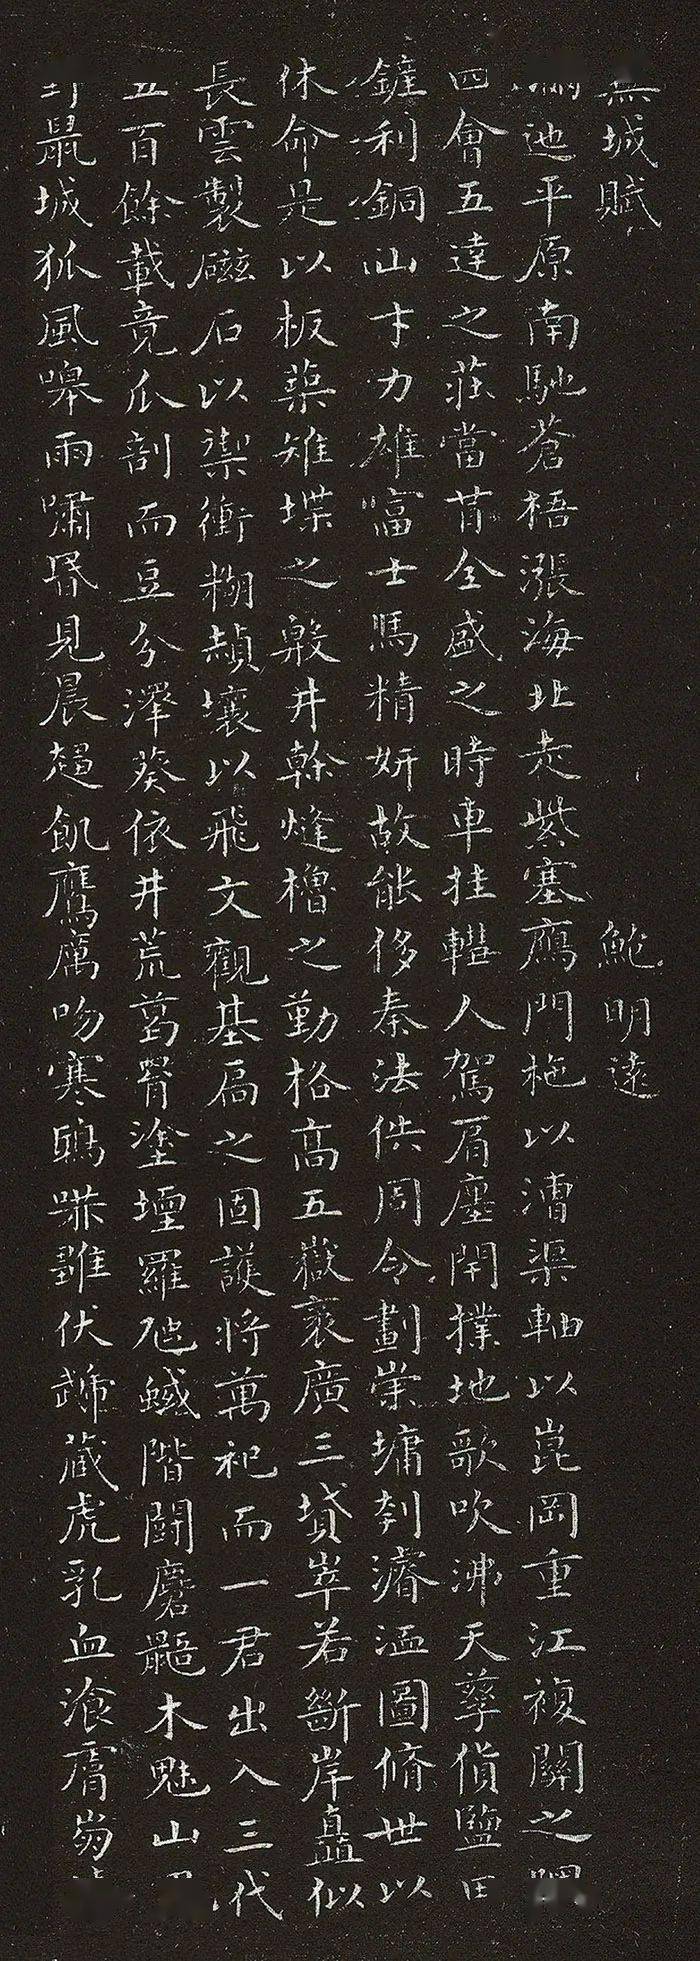 蕪城賦 鮑明遠
迤平原南馳蒼梧漲海北走紫塞鴈門柂以漕渠軸以崑岡重江複關之隩
四會五達之莊當昔全盛之時車挂轊人駕肩廛閈撲地歌吹沸天孳貨鹽田
鏟利銅山才力雄富士馬精妍故能侈秦法佚周令劃崇墉刳濬洫圖脩世以
休命是以板築雉堞之殷井幹烽櫓之勤格高五嶽袤廣三墳崒若斷岸矗似
長雲製磁石以禦衝糊赬壤以飛文觀基扃之固護將萬祀而一君出入三代
五百餘載竟瓜剖而豆分澤葵依井荒葛罥塗壇羅虺蜮階鬭麏鼯木魅山
野鼠城狐風嘷雨嘯昏見晨趨飢鷹厲吻寒鴟嚇雛伏虣藏虎乳血飡膚崩